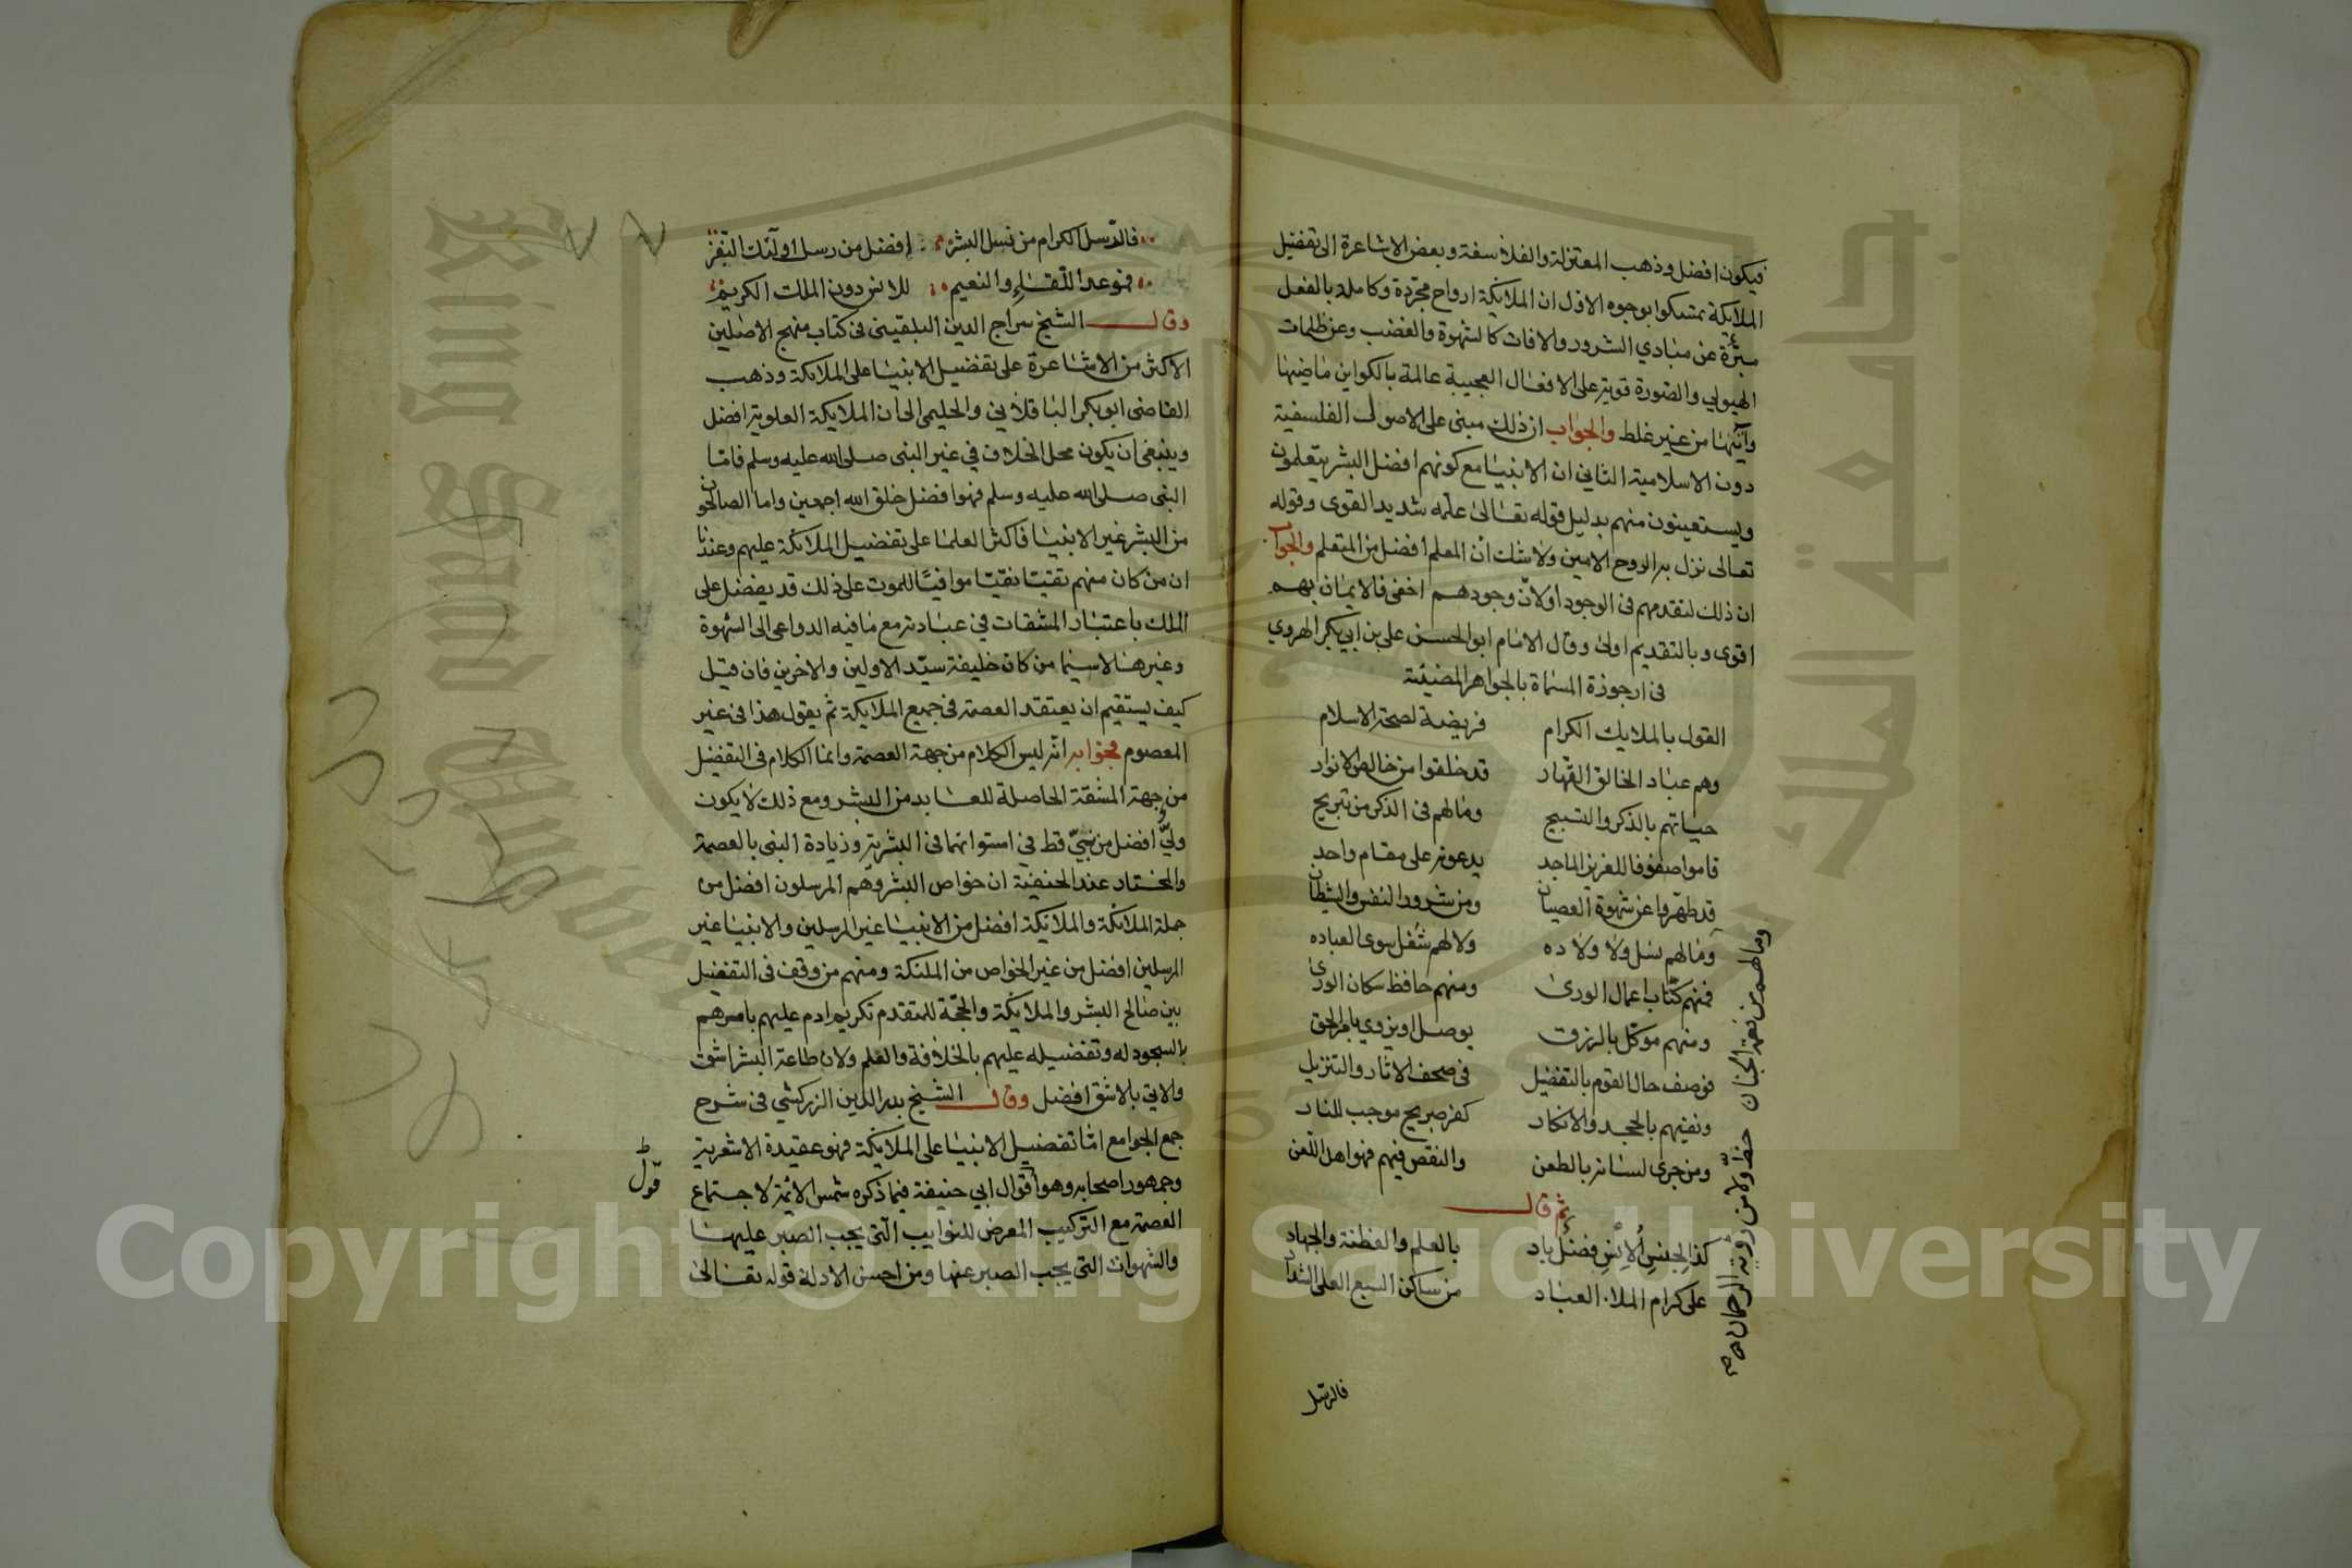 فيكون افضل وذهب المعتزلة والفلاسفة وبعض الاشاعرة الى تفضيل
الملايكة تمسكوا بوجوه الاول ان الملايكة ارواح مجردة وكاملة بالفعل
مبرءة عن مبادي الشرور والافات كالشهوة والغضب وعن ظلمات
الهيولي والصورة قوية على الافعال العجيبة عالمة بالكواين ماضيها
وآتيها من غير غلط والجواب ان ذلك مبنى على الاصول الفلسفية
دون الاسلامية الثاني ان الانبيا مع كونهم افضل البشر يتعلمون
ويستعينون منهم بدليل قوله تعالى علمه شديد القوى وقوله
تعالى نزل به الروح الامين ولا شك ان المعلم افضل من المتعلم والجواب
ان ذلك لتقدمهم في الوجود اولان وجودهم اخفى فالايمان بهم
اقوى وبالتقديم اولى وقال الامام ابو الحسن على بن ابي بكر الهروي
في ارجوزة المسماة بالجواهر المضيئة
القول بالملايك الكرام فريضة لصحة الاسلام
وهم عباد الخالق القهار قد خلقوا من خالص الانوار
حياتهم بالذكر والتسبيح ومالهم في الذكر من تبريح
قاموا صفوفا للعزيز الماجد يدعونه على مقام واحد
قد طهروا عن شهوة العصيان ومن شرور النفس والشيطان
ومالهم نسل ولا ولاده ولا لهم شغل سوى العباده
فمنهم كتاب اعمال الورى ومنهم حافظ سكان الورى
ومنهم موكل بالرزق يوصل او يزوي بامر الحق
فوصف حال القوم بالتفضيل في صحف الاثار والتنزيل
ونفيهم بالجحد والانكار كفر صريح موجب للنار
ومن جرى لسانه بالطعن والنقص فيهم فهو اهل اللعن
ثم قال
كذا لجنس الانس فضل باد بالعلم والفطنة والجهاد
على كرام الملاء العباد من ساكن السبع العلى الشداد
وما لهم من نعمة الجنان حظ ولا من رؤية الرحمان
فالرسل
فالرسل الكرام من نسل البشر افضل من رسل اولئك النفر
فموعد اللقاء والنعيم للانس دون الملك الكريم
وقال الشيخ سراج الدين البلقيني في كتاب منهج الاصلين
الاكثر من الاشاعرة على تفضيل الانبيا على الملايكة وذهب
القاضى ابو بكر الباقلاني والحليمي الى ان الملايكة العلوية افضل
وينبغى ان يكون محل الخلاف في غير النبى صلى الله عليه وسلم فاما
النبى صلى الله عليه وسلم فهو افضل خلق الله اجمعين واما الصالحون
من البشر غير الانبيا فاكثر العلما على تفضيل الملايكة عليهم وعندنا
ان من كان منهم تقيا نقيا موافيا للموت على ذلك قد يفضل على
الملك باعتبار المشقات في عبادته مع ما فيه الدواعى الى الشهوة
وغيرها لاسيما من كان خليفة سيد الاولين والاخرين فان قيل
كيف يستقيم ان يعتقد العصمة في جميع الملايكة ثم يقول هذا في غير
المعصوم فجوابه انه ليس الكلام من جهة العصمة وانما الكلام في التفضيل
من جهة المشقة الحاصلة للعابد من البشر ومع ذلك لا يكون
ولي افضل من نبي قط في استوائهما في البشرية وزيادة النبى بالعصمة
والمختار عند الحنفية ان خواص البشر وهم المرسلون افضل من
جملة الملائكة والملايكة افضل من الانبيا غير المرسلين والانبيا غير
المرسلين افضل من غير الخواص من الملئكة ومنهم من وقف في التفضيل
بين صالح البشر والملايكة والحجة للمتقدم تكريم ادم عليهم بامرهم
بالسجود له وتفضيله عليهم بالخلافة والعلم ولان طاعة البشر اشق
والاتي بالاشق افضل وقال الشيخ بدر الدين الزركشي في شرح
جمع الجوامع اما تفضيل الانبيا على الملايكة فهو عقيدة الاشعرية
وجمهور اصحابه وهو أقوال ابي حنيفة فيما ذكره شمس الائمة لاجتماع
العصمة مع التركيب المعرض للنوايب التى يجب الصبر عليها
والشهوات التى يجب الصبر عنها ومن احسن الادلة قوله تعالى
قول
جامعة الملك سعود
King Saud University
1957
Copyright © King Saud University